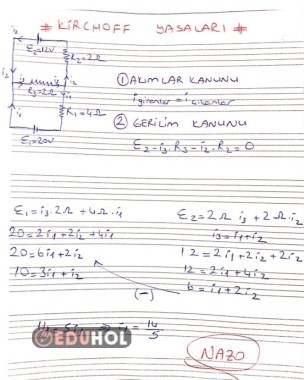 # KIRCHOFF YASALARI #
i₂
E₂=12V
R₂=2Ω
i₂
i₃
i₂
R₃=2Ω
i₁
R₁=4Ω
i₁
E₁=20V
① AKIMLAR KANUNU
i girenler = i çıkanlar
② GERİLİM KANUNU
E₂-i₃.R₃-i₂.R₂=0
E₁=i₃.2Ω + 4Ω.i₁
20=2i₁+2i₂+4i₁
20=6i₁+2i₂
10=3i₁+i₂
E₂=2Ω i₃+2Ω.i₂
i₃=i₁+i₂
12=2i₁+2i₂+2i₂
12=2i₁+4i₂
6=i₁+2i₂
(-)
i₁=14/5
EDUHOL
NAZO